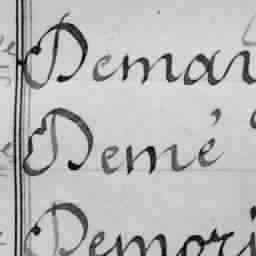 Demar
Demé
Demori